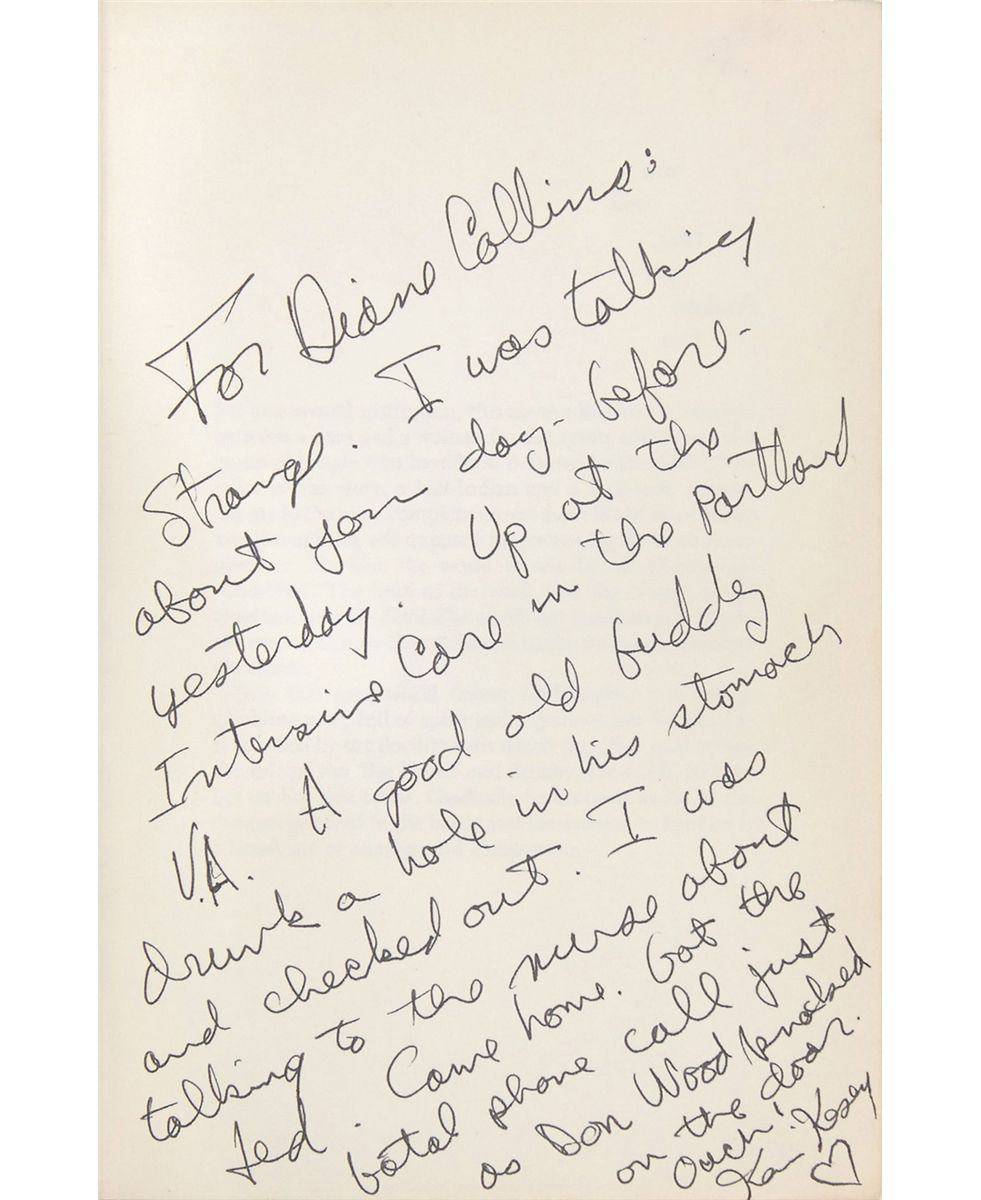 For Diane Collins:
Strange. I was talking
about you day-before-
yesterday. Up at the
Intensive Care in the Portland
V.A. A good old buddy
drunk a hole in his stomach
and checked out. I was
talking to the nurse about
Jed. Come home. Got the
fatal phone call just
as Don Wood knocked
on the door.
Ouch!
Ken Kesey